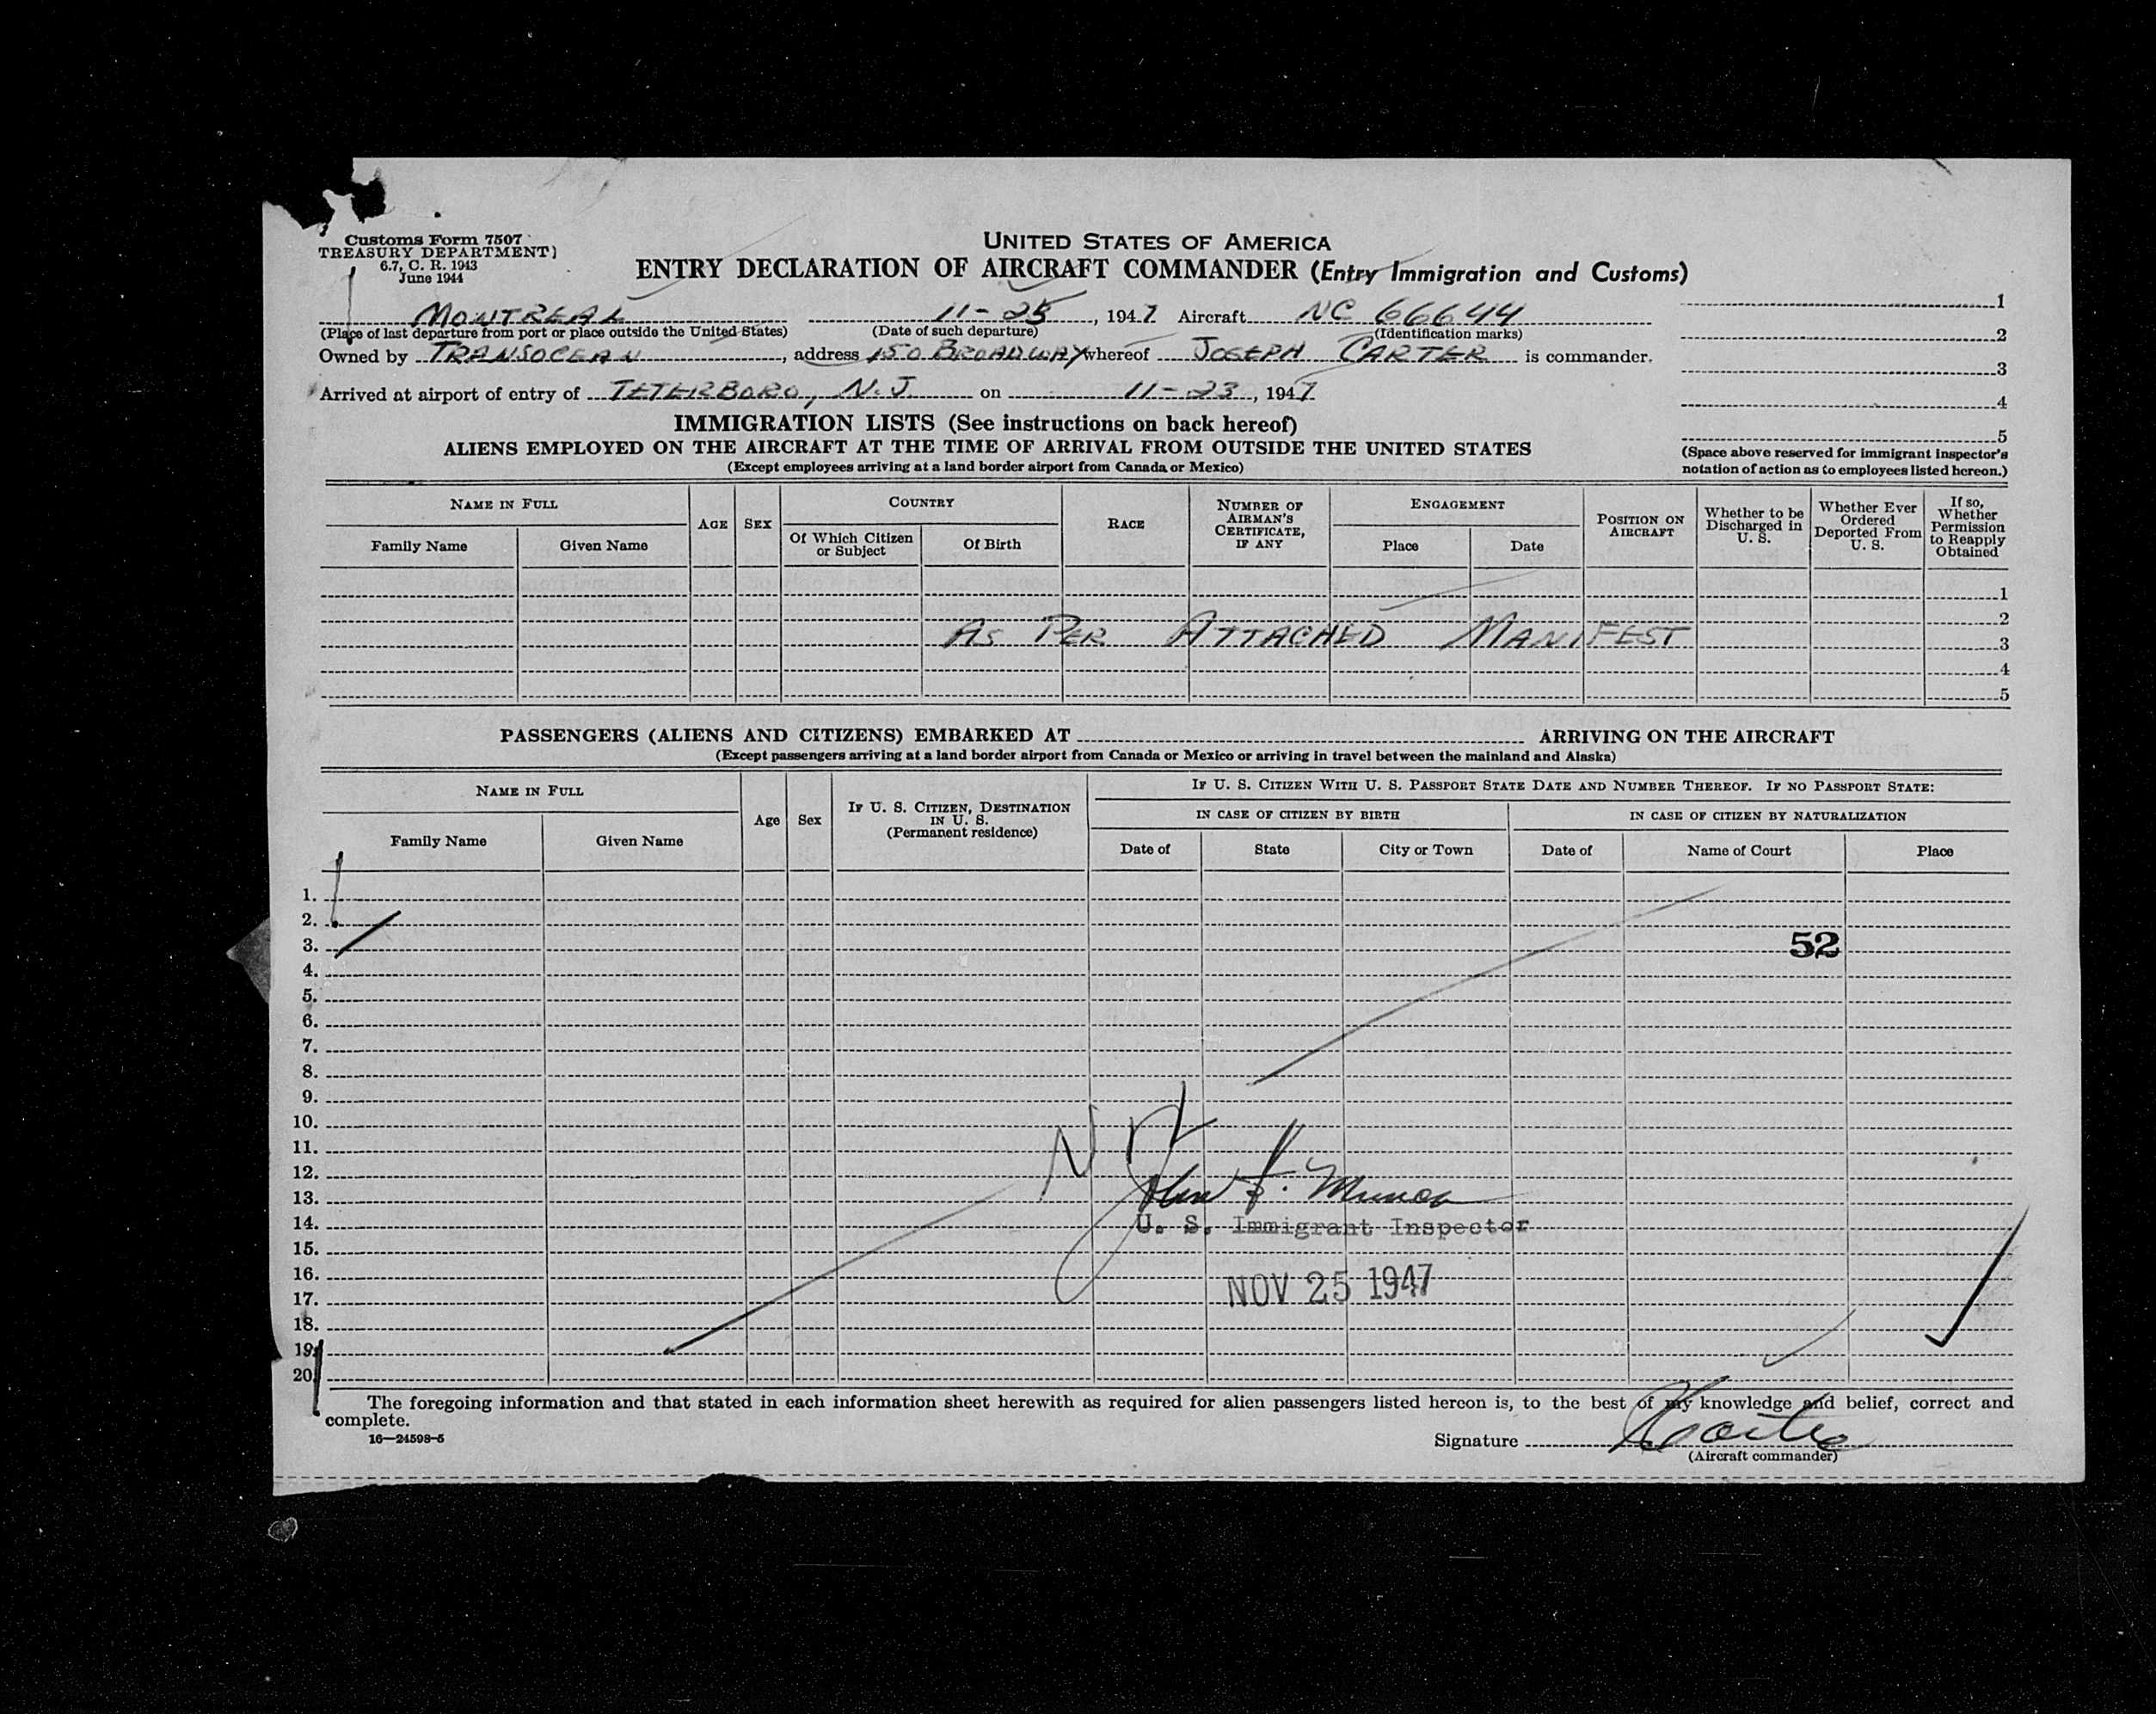 Customs Form 7507
TREASURY DEPARTMENT)
6.7, C. R. 1943
June 1944
UNITED STATES OF AMERICA
ENTRY DECLARATION OF AIRCRAFT COMMANDER (Entry Immigration and Customs)
MONTREAL 11-25, 1947 Aircraft NC 66644
(Place of last departure from port or place outside the United States) (Date of such departure) (Identification marks)
Owned by TRANSOCEAN, address 150 BROADWAY whereof JOSEPH CARTER is commander.
Arrived at airport of entry of TETERBORO, N.J on 11-23, 1947
1
2
3
4
5
(Space above reserved for immigrant inspector's
notation of action as to employees listed hereon.)
IMMIGRATION LISTS (See instructions on back hereof)
ALIENS EMPLOYED ON THE AIRCRAFT AT THE TIME OF ARRIVAL FROM OUTSIDE THE UNITED STATES
(Except employees arriving at a land border airport from Canada or Mexico)
NAME IN FULL
Family Name Given Name
AGE
SEX
COUNTRY
Of Which Citizen
or Subject
Of Birth
RACE
NUMBER OF
AIRMAN'S
CERTIFICATE,
IF ANY
ENGAGEMENT
Place Date
POSITION ON
AIRCRAFT
Whether to be
Discharged in
U. S.
Whether Ever
Ordered
Deported From
U. S.
If so,
Whether
Permission
to Reapply
Obtained
1
2
AS PER ATTACHED MANIFEST
3
4
5
PASSENGERS (ALIENS AND CITIZENS) EMBARKED AT ARRIVING ON THE AIRCRAFT
(Except passengers arriving at a land border airport from Canada or Mexico or arriving in travel between the mainland and Alaska)
NAME IN FULL
Family Name Given Name
Age
Sex
IF U. S. CITIZEN, DESTINATION
IN U. S.
(Permanent residence)
IF U. S. CITIZEN WITH U. S. PASSPORT STATE DATE AND NUMBER THEREOF. IF NO PASSPORT STATE:
IN CASE OF CITIZEN BY BIRTH
Date of State City or Town
IN CASE OF CITIZEN BY NATURALIZATION
Date of Name of Court Place
1.
2.
3. 52
4.
5.
6.
7.
8.
9.
10.
11.
12.
13.
14. U. S. Immigrant Inspector
15.
16.
NOV 25 1947
17.
18.
19.
20.
The foregoing information and that stated in each information sheet herewith as required for alien passengers listed hereon is, to the best of my knowledge and belief, correct and
complete.
16—24598-5
Signature Carter
(Aircraft commander)